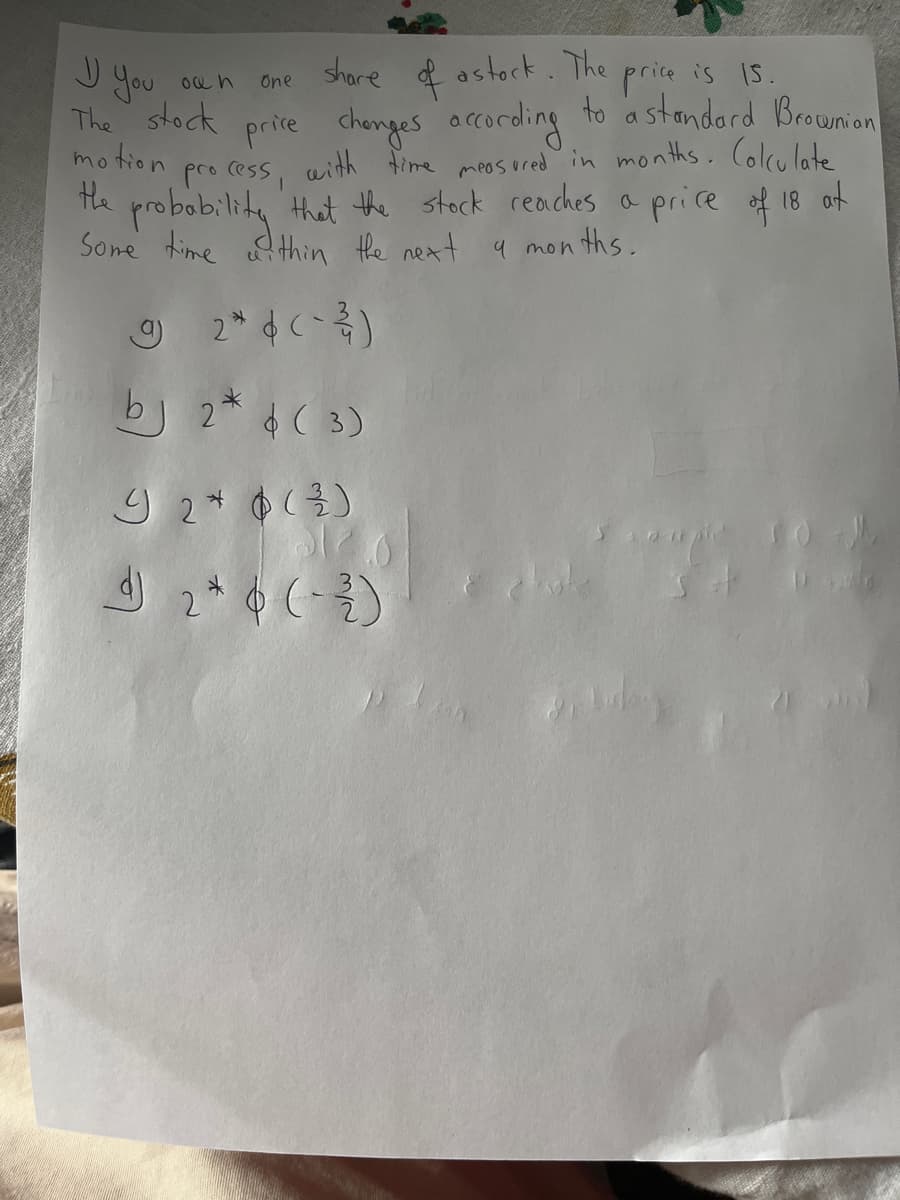 1) You own one share of a stock. The price is 15.
The stock price changes according to a standard Brownian
motion process, with time measured in months. Calculate
the probability that the stock reaches a price of 18 at
Some time within the next 4 months.
a) 2* ϕ(-3/4)
b) 2* ϕ(3)
c) 2* ϕ(3/2)
d) 2* ϕ(-3/2)